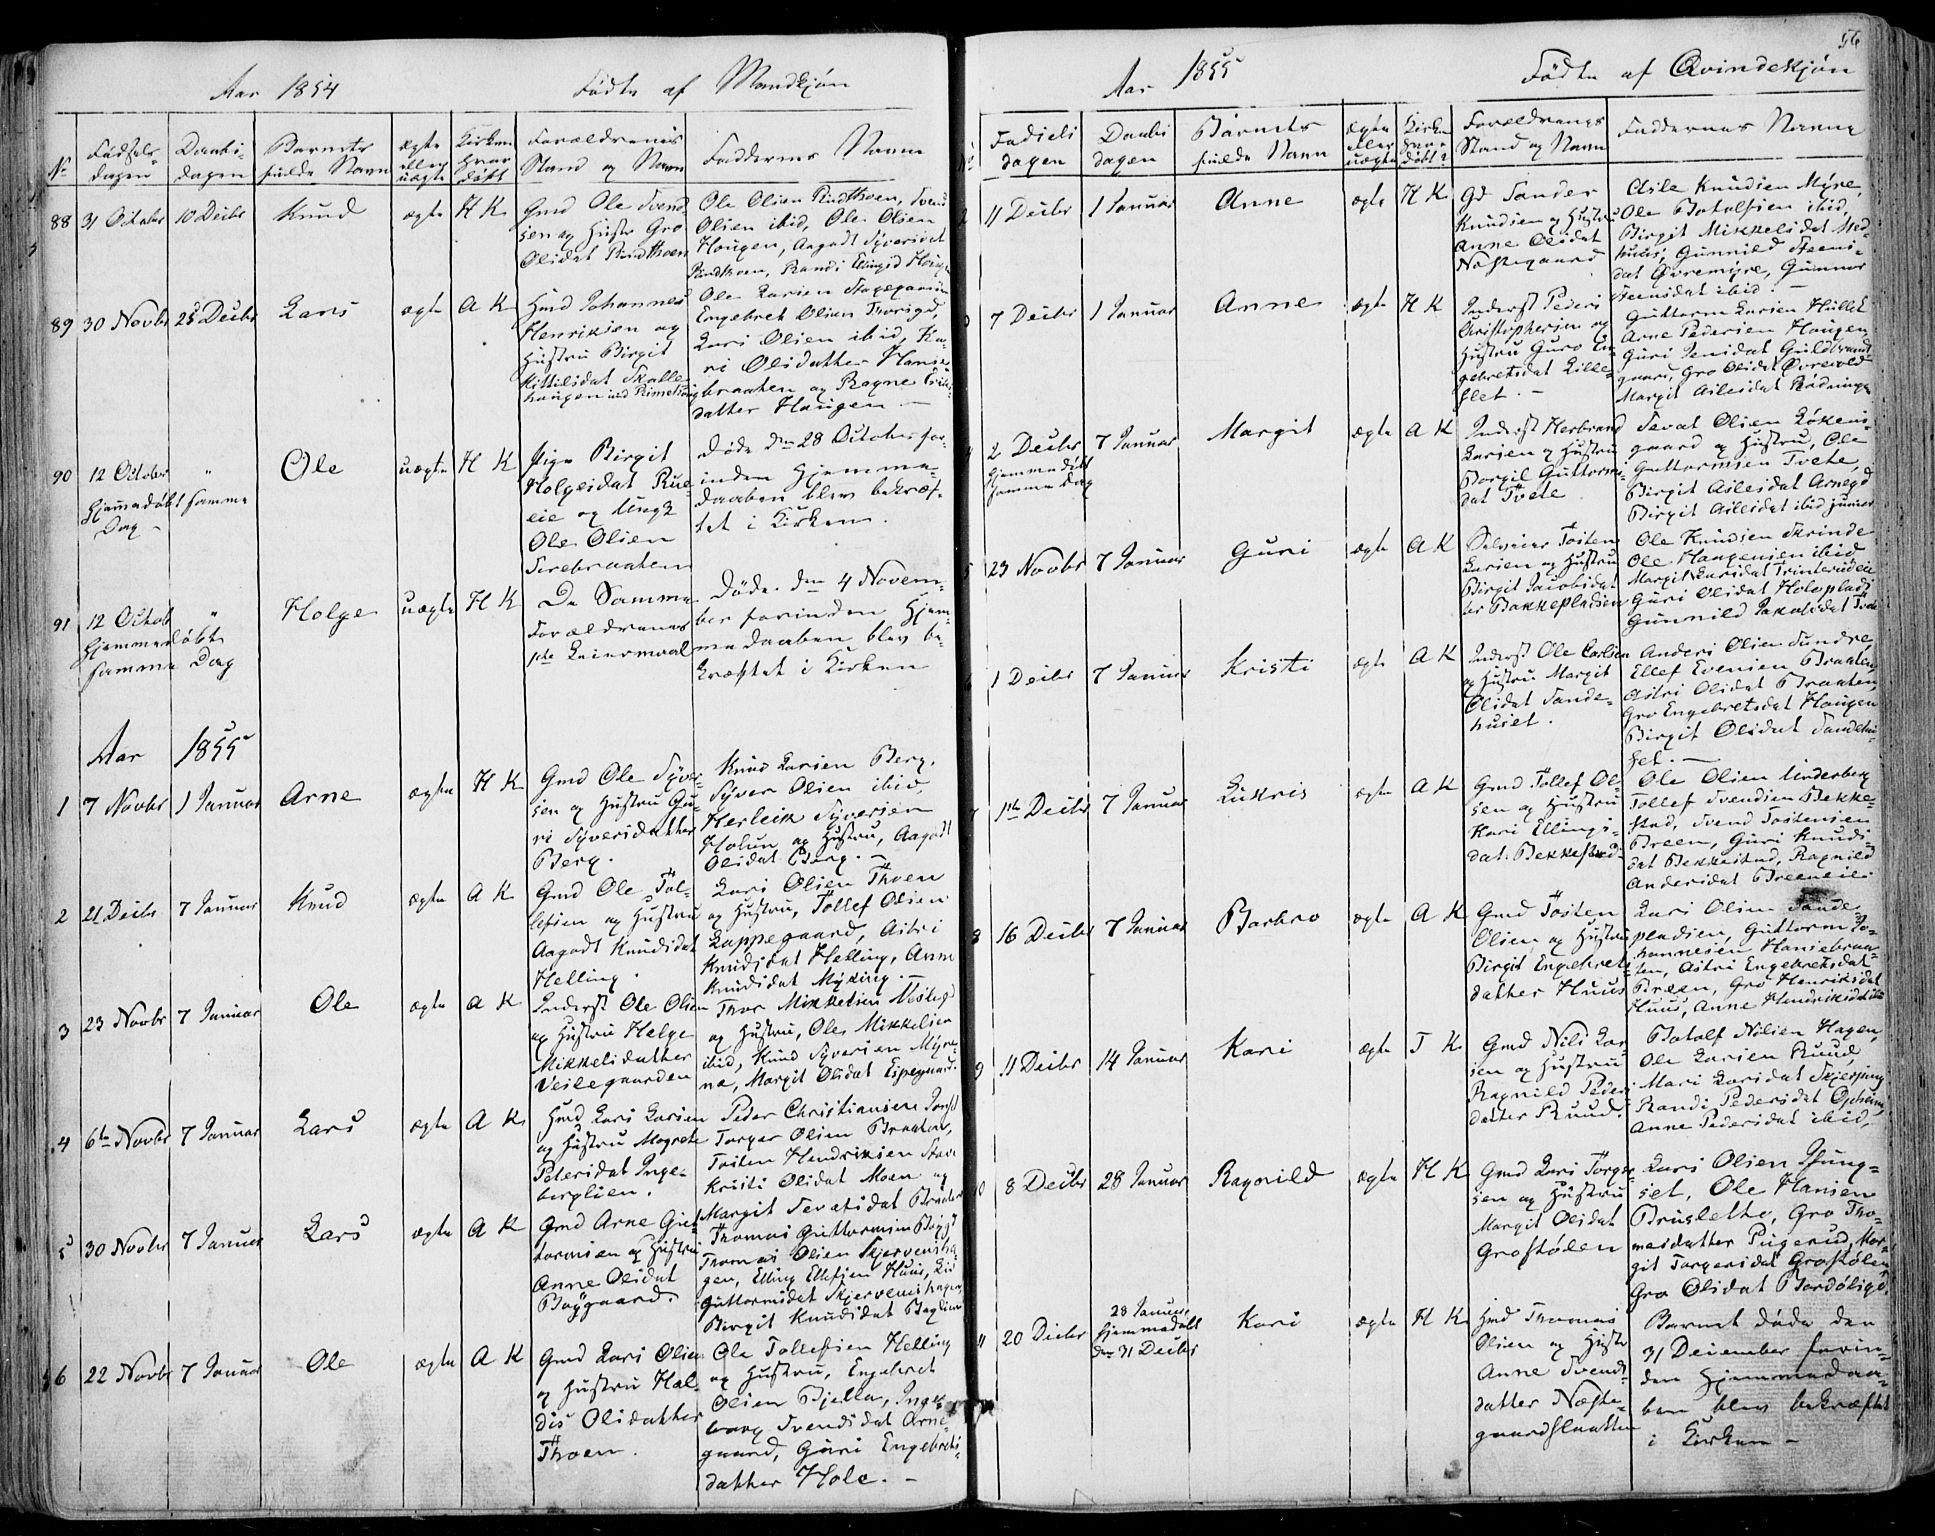 Aar 1854 Fødte af Mandkjøn
No Fødsels-dagen Daabs-dagen Barnets fulde Navn ægte eller uægte Kirken hvor døbt Forældrenes Stand og Navn Faddernes Navne
88 31 October 10 Decbr Knud ægte H K
Gmd Ole Svend-
sen og Hustr Gro
Olsdat Rindthoen
Ole Olsen Rindthoen, Svend
Olsen ibid, Ole Olsen
Haugen, Aagodt Syversdat
Rindthoen, Randi Ellingsd Haugen
89 30 Novbr 25 Decbr Lars ægte A K
Hmd Johannes
Henriksen og
Hustru Birgit
Kittilsdat Skalle-
haugen
Ole Larsen
Engebret Olsen Thorsgd,
Lars Olsen ibid, Ka-
ri Olsdatter Hanse-
braaten og Ragne
datter Haugen —
90 12 October
Hjemmedøbt samme
Dag —
" Ole uægte H K
Pige Birgit
Holgesdat Rue-
eie og Ungk
Ole Olsen
Sirebraaten
Døde den 28 October for-
inden Hjemme-
daaben blev bekræf-
tet i Kirken.
91 12 Octob
Hjemmedøbt
samme Dag
" Holge uægte H K
De Samme
Forældrenes
1ste Leiermaal
Døde den 4 Novem-
ber forinden Hjem-
medaaben blev be-
kræftet i Kirken
Aar 1855
1 7 Novbr 1 Januar Arne ægte H K
Gmd Ole Syver-
sen og Hustru Gu-
ri Syversdatter
Berg.
Knud Larsen Berg,
Syver Olsen ibid,
Herleik Syversen
Holun og Hustru, Aagodt
Olsdat Berg. —
2 21 Decbr 7 Januar Knud ægte A K
Gmd Ole Tol-
lefsen og Hustru
Aagodt Knudsdat
Helling.
Lars Olsen Thoen
og Hustru, Tollef Olsen
Lappegaard, Astri
Knudsdat Helling, Anne
Knudsdat Myking. —
3 23 Novbr 7 Januar Ole ægte A K
Inderst Ole Olsen
og Hustru Helge
Mikkelsdatter
Veslegaarden
Thor Mikkelsen Nestegd
og Hustru, Ole Mikkelsen
ibid, Knud Syversen Myre-
ne, Margit Olsdat Espegaard.
4 6te Novbr 7 Januar Lars ægte A K
Hmd Lars Larsen
og Hustru Magrete
Petersdat Inge-
berglien.
Peder Christiansen
Torger Olsen Braaten,
Tosten Hendriksen
Kristi Olsdat Moen og
Margit Sevatsdat
5 30 Novbr 7 Januar Lars ægte A K
Gmd Arne Gut-
tormsen og Hustru
Anne Olsdat
Bøygaard.
Thomas Guttormsen Bøygd
Thomas Olsen Skjervensha-
gen, Elling Ellefsen Huus, Liv
Guttormsdat Skjervenshagen
Birgit Knudsdat
6 22 Novbr 7 Januar Ole ægte A K
Gmd Lars Olsen
og Hustru Hal-
dis Olsdatter
Thoen.
Ole Tollefsen Helling
og Hustru, Engebret
Olsen Bjella, Inge-
borg Svendsdat Arne-
gaard, Guri Engebrets-
datter Hole. —
56
Aar 1855 Fødte af Qvindekjøn
No Fødsels dagen Daabs dagen Barnets fulde Navn Ægte eller uægte Kirke hvor døbt? Forældrenes Stand og Navn Faddernes Navne
2 11 Decbr 1 Januar Anne ægte H K
Gd Sander
Knudsen og Hustru
Anne Olsdat
Nestegaard
Asle Knudsen Myre,
Ole Botolfsen ibid,
Birgit Mikkelsdat Med-
huus, Gunnild Steens-
dat Øvremyre, Gunnor
Steensdat ibid. —
3 7 Decbr 1 Januar Anne ægte H K
Inderst Peder
Christophersen og
Hustru Guro En-
gebretsdat Lille-
slet. —
Guttorm Larsen Hullet
Arne Pedersen Haugen
Guri Jensdat Guldbrands-
gaard, Gro Olsdat Øvrevold
Margit Aslesdat Rødningen
4 2 Decbr
hjemmedøbt
samme Dag
7 Januar Margit ægte A K
Inderst Herbrand
Larsen og Hustru
Borgil Guttorms-
dat Tvete
Sevat Olsen Løkens-
gaard og Hustru, Ole
Guttormsen Tvete,
Birgit Aslesdat Arnegd
Birgit Aslesdat ibid junior
5 23 Novbr 7 Januar Guri ægte A K
Selveier Tosten
Larsen og Hustru
Birgit Jacobsdat-
ter Bakkepladsen
Ole Knudsen Skrinde
Ole Haugensen ibid
Margit Larsdat Trinterudeie
Guri Olsdat Holoplads
Gunnild Jakobsdat Tvete
6 1 Decbr 7 Januar Kristi ægte A K
Inderst Ole Carlsen
og Hustru Margit
Olsdat Sande-
huset.
Anders Olsen Sundre,
Ellef Evensen Braaten
Astri Olsdat Braaten,
Gro Engebretsdat Haugen
Birgit Olsdat Sandehu-
set. —
7 1ste Decbr 7 Januar Lukris ægte A K
Gmd Tollef Ol-
sen og Hustru
Kari Ellings-
dat. Bekkestad
Ole Olsen Underberg
Tollef Svendsen Bekke-
stad, Svend Tostensen
Breen, Guri Knuds-
dat Bekkestad, Ragnild
Andersdat Breeneie.
8 16 Decbr 7 Januar Barbro ægte A K
Gmd Tosten
Olsen og Hustru
Birgit Engebrets-
datter Huus
Lars Olsen Sande-
pladsen, Guttorm Jo-
hannesen Hansebraa-
ten, Astri Engebretsdat
Breen, Gro Henriksdat
Huus, Anne Hendriksdat ibid
9 11 Decbr 14 Januar Kari ægte T K
Gmd Nils Lar-
sen og Hustru
Ragnild Peders-
datter Ruud.
Botolf Nilsen Hagen,
Ole Larsen Ruud,
Mari Larsdat
Randi Pedersdat Opheim,
Anne Pedersdat ibid,
10 8 Decbr 28 Januar Ragnild ægte H K
Gmd Lars Torger-
sen og Hustru
Margit Olsdat
Grostølen
Lars Olsen
set, Ole Hansen
Bruslette, Gro Tho-
mesdatter Pugerud, Mar-
git Torgersdat Grostølen
Gro Olsdat Bardølsgd.
11 20 Decbr 28 Januar,
hjemmedøbt
den 31 Decbr
Kari ægte H K
Hmd Thomas
Olsen og Hustr
Anne Svends-
datter Neste-
gaardslaatten
Barnet døde den
31 December forin-
den Hjemmedaa-
ben blev bekræftet
i Kirken —